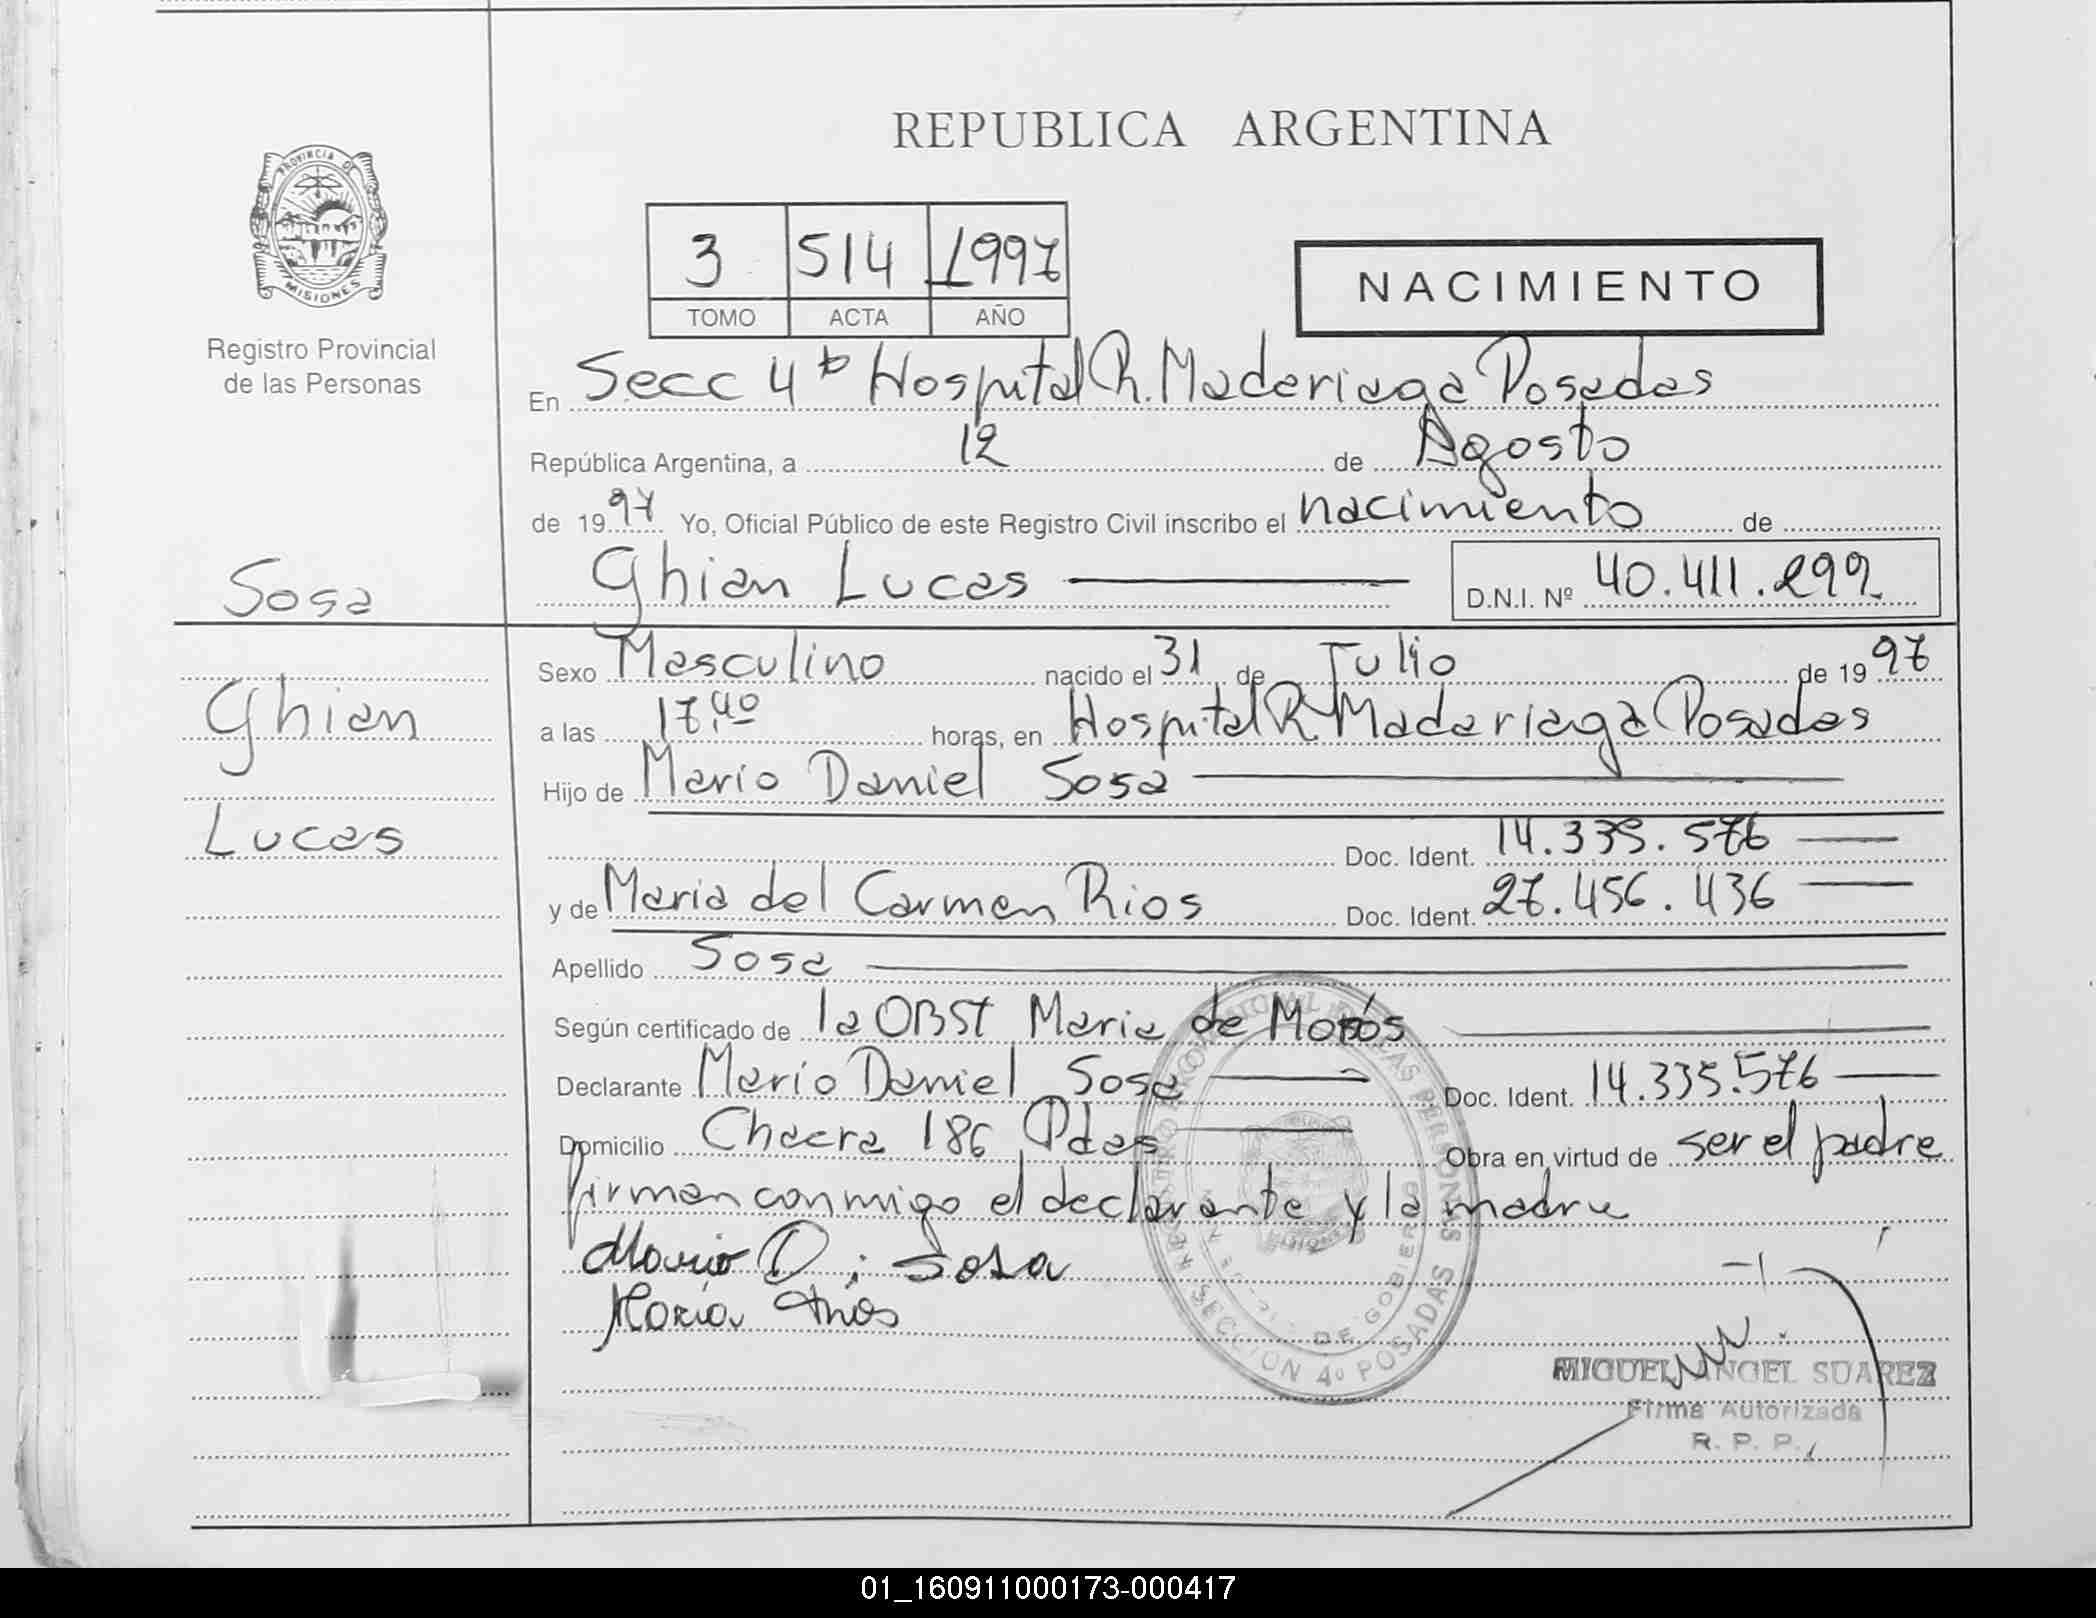 REPUBLICA ARGENTINA
PROVINCIA DE
MISIONES
Registro Provincial
de las Personas
3 514 1997
TOMO ACTA AÑO
NACIMIENTO
En Secc 4ta Hospital R. Madariaga Posadas
República Argentina, a 12 de Agosto
de 1997 Yo, Oficial Público de este Registro Civil inscribo el nacimiento de
Sosa
Ghian Lucas
D.N.I. Nº 40.411.299
Sexo Masculino nacido el 31 de Julio de 1997
Ghian
a las 17,40 horas, en Hospital R. Madariaga Posadas
Hijo de Mario Daniel Sosa
Lucas
Doc. Ident. 14.335.576
y de Maria del Carmen Rios Doc. Ident. 27.456.436
Apellido Sosa
Según certificado de la OBST Maria de
Declarante Mario Daniel Sosa Doc. Ident. 14.335.576
Domicilio Chacra 186 Pdas Obra en virtud de ser el padre
firman conmigo el declarante y la madre
Mario D. Sosa
Maria
SECCION 4º POSADAS
DE GOBIERNO
MIGUEL ANGEL SUAREZ
Firma Autorizada
R. P. P.
01_160911000173-000417